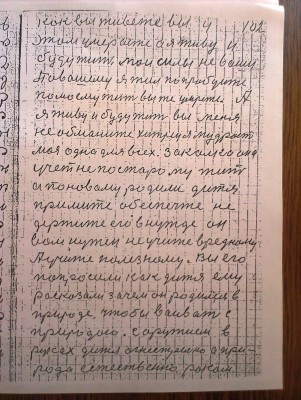 кон вы живете вы и 102
этом умераете а я живу и
будут жит мои силы не ваши
По вашему я жил попробуйте
по моему жит вы не умрете. А
я живу и будут жит вы меня
не обманите хитруя мудрост
моя одна для всех. закалка она
учет не по старому жит
а по новому родили дитя
примите обеспечте не
держите его в нужде он
вам нужен не учите вредному
А учите полезному. Вы его
попросили как дитя ему
расказали зачем он родился в
природе, чтобы ваеват с
природою. с оружием в
руках дитя огнестрелно а при-
рода естественно